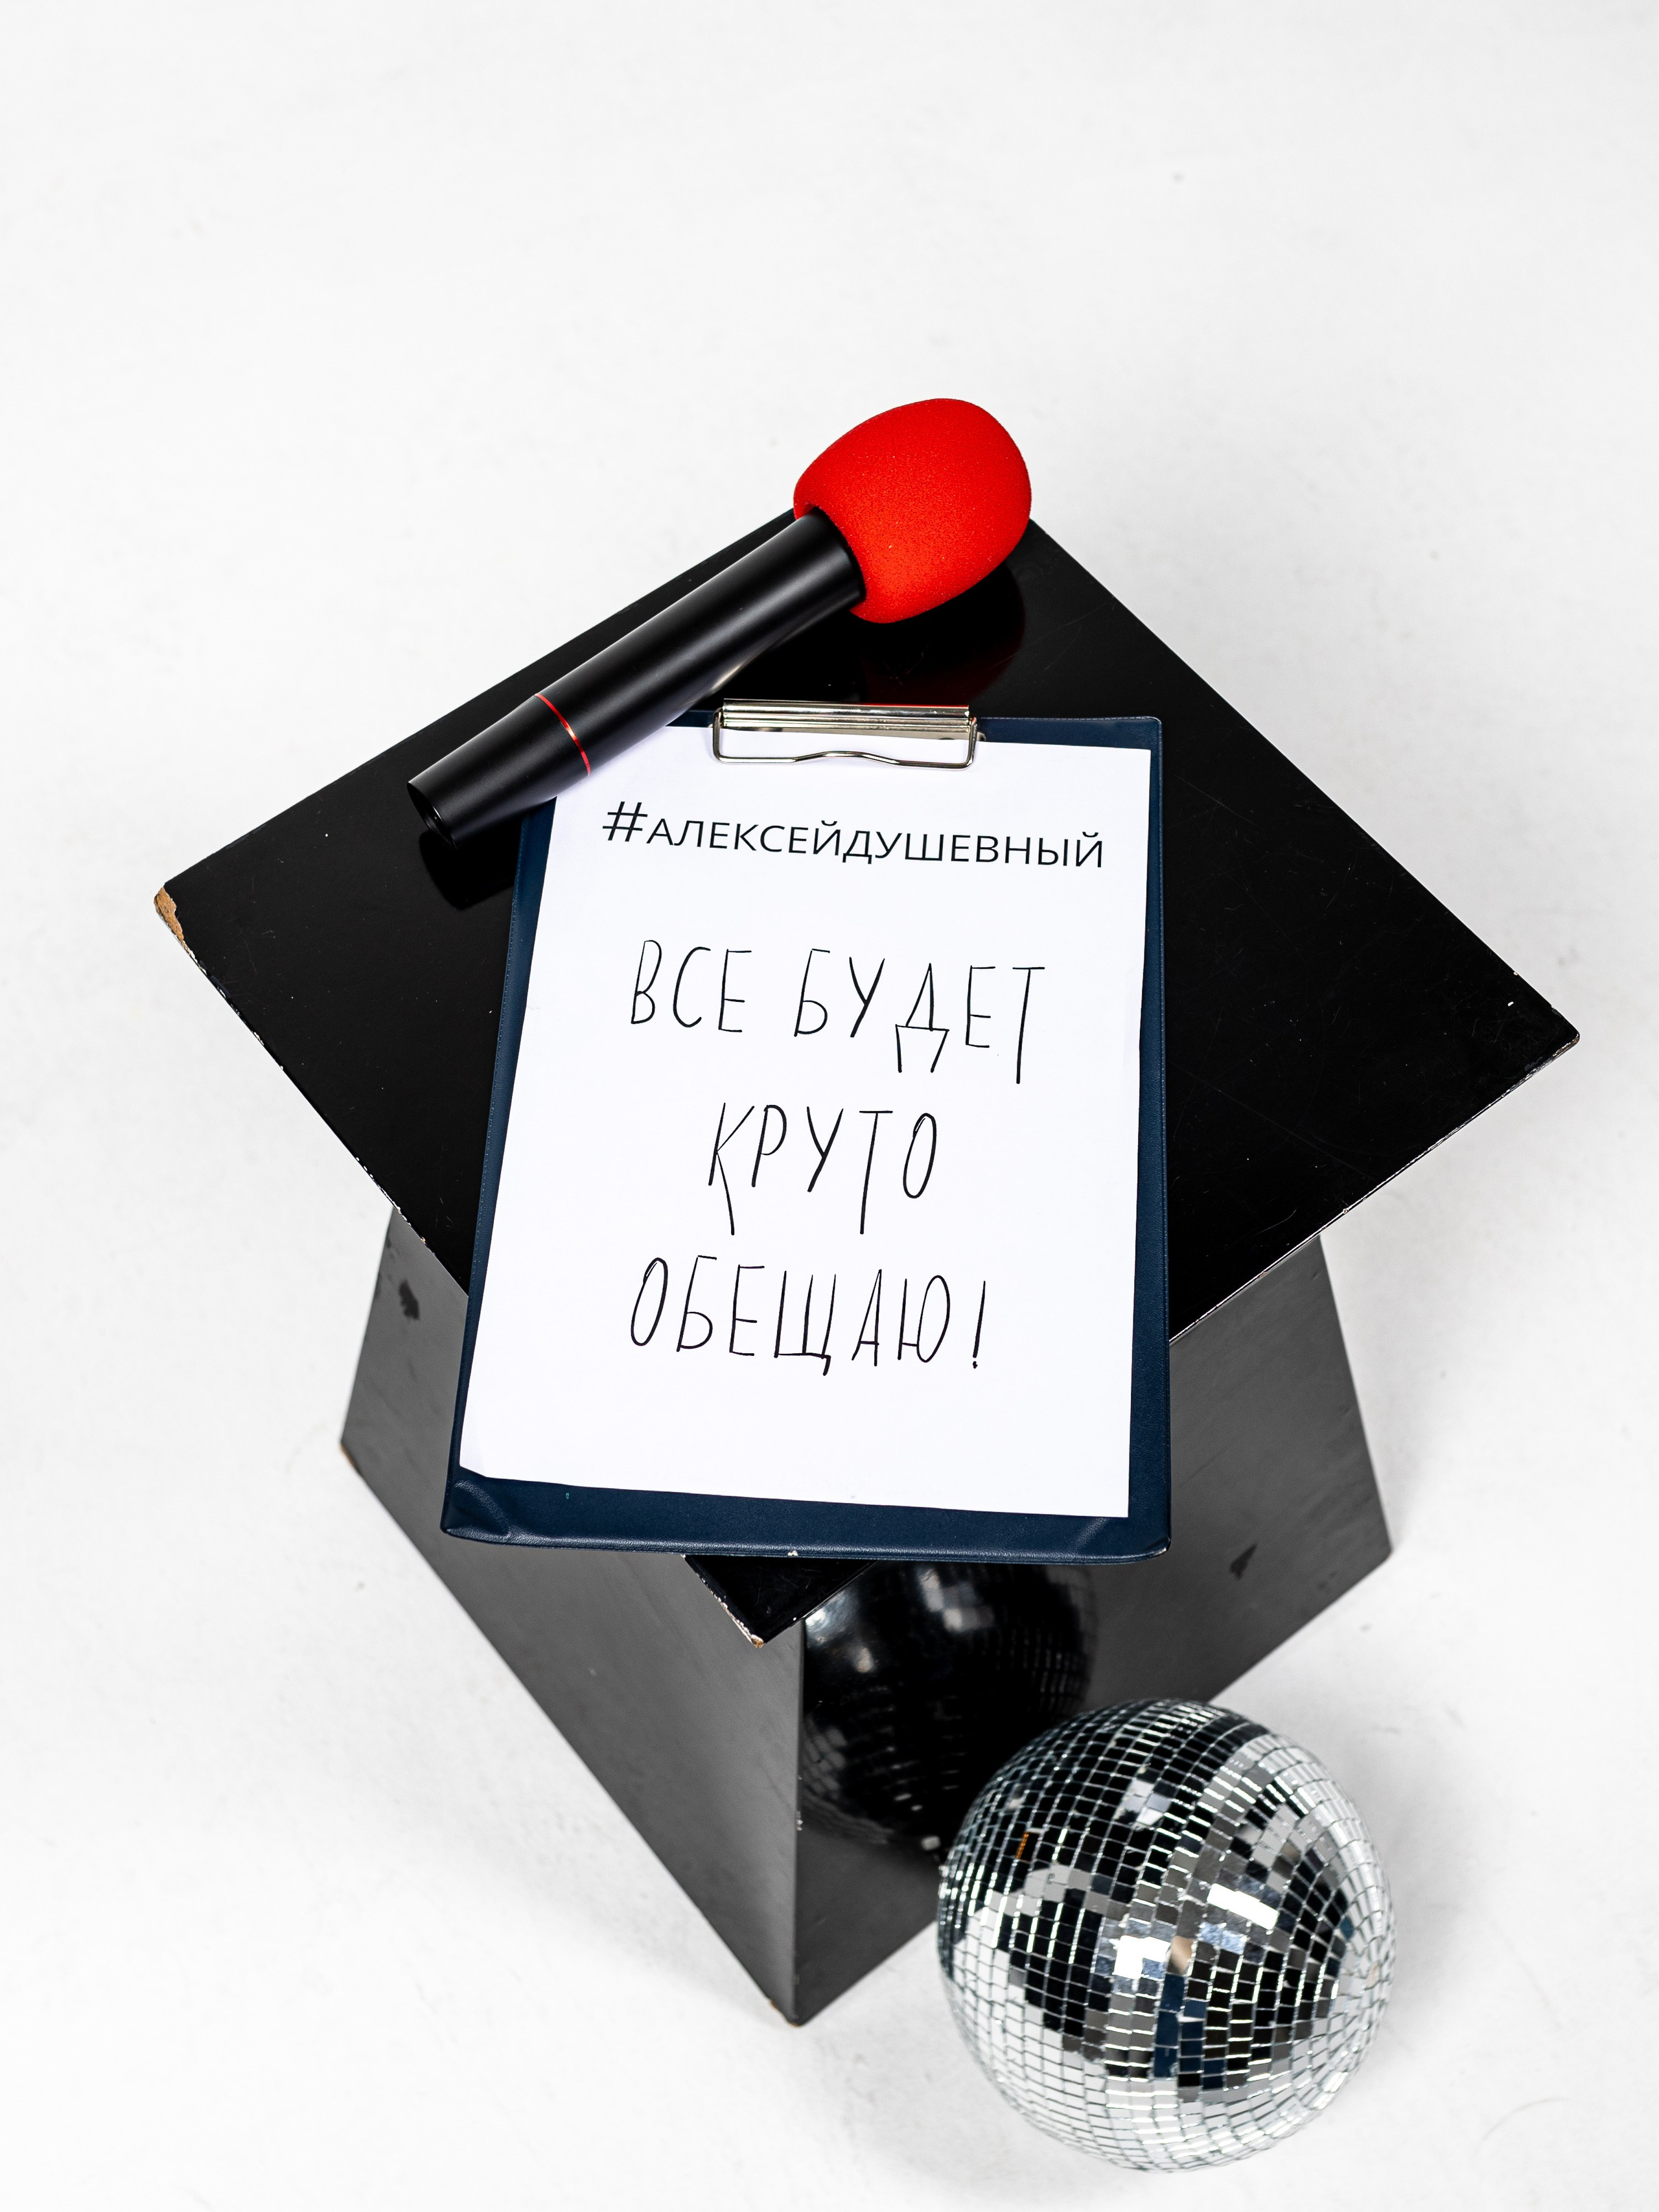 #АЛЕКСЕЙДУШЕВНЫЙ
ВСЕ БУДЕТ
КРУТО
ОБЕЩАЮ!